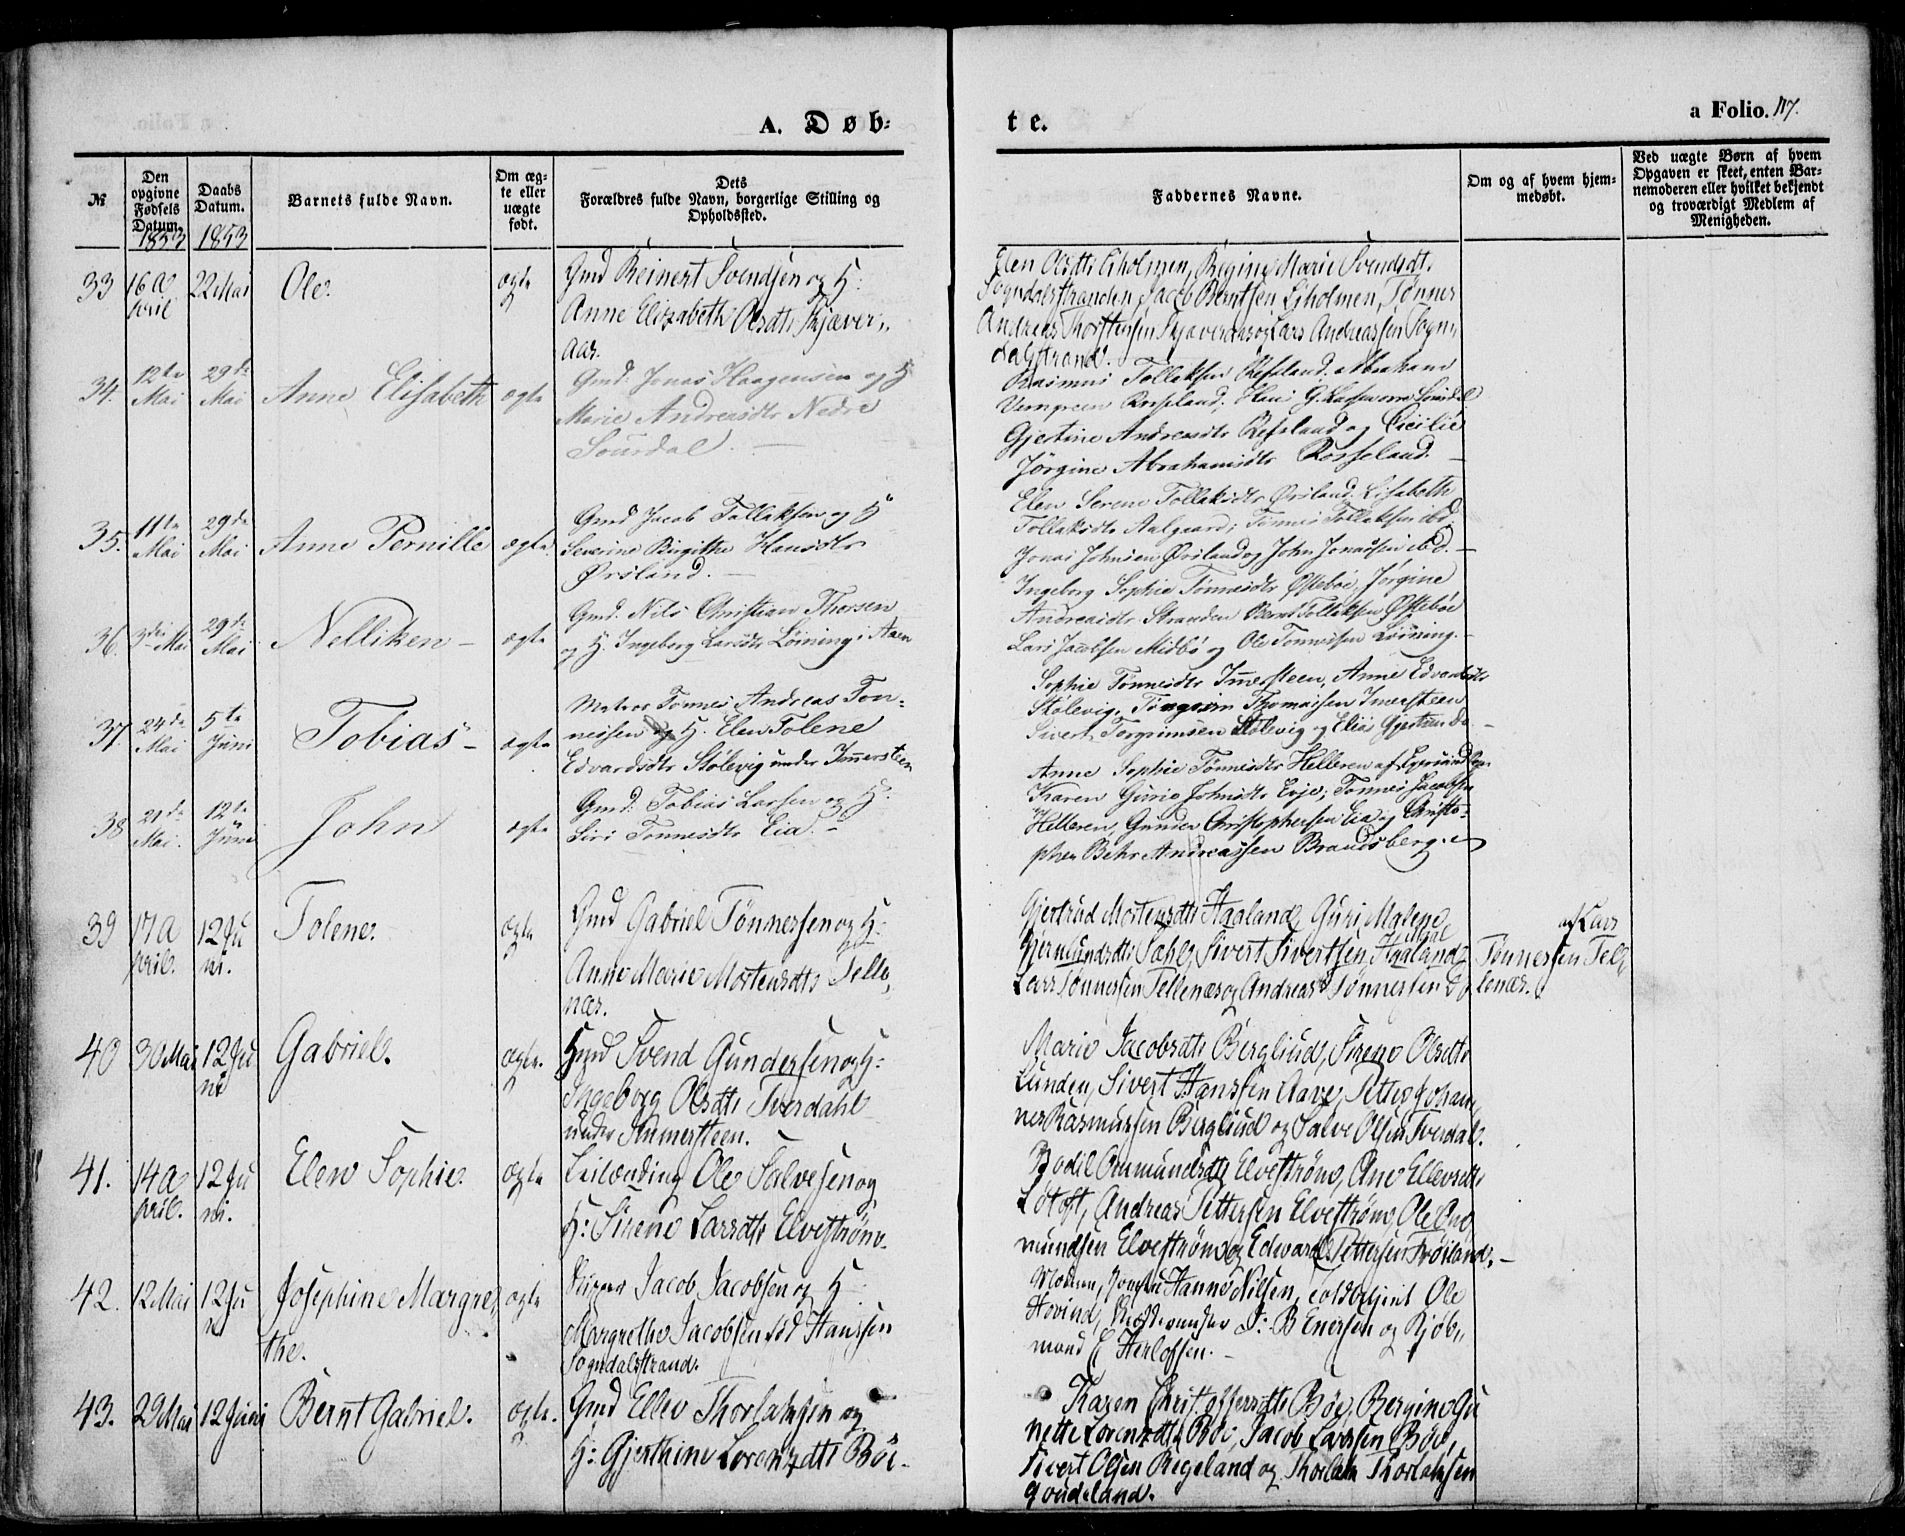 A. Døb-
te.
a Folio. 117.
№
Den opgivne Fødsels Datum.
1853
Daabs Datum.
1853
Barnets fulde Navn.
Om ægte eller uægte født.
Dets
Forældres fulde Navn, borgerlige Stilling og
Opholdssted.
Faddernes Navne.
Om og af hvem hjem-
medøbt.
Ved uægte Børn af hvem
Opgaven er skeet, enten Bar-
nemoderen eller hvilket bekjendt
og troværdigt Medlem af
Menigheden.
33 16 A 22 Mai Ole. ægte Gmd Reinert Svendsen og H:
pril
Anne Elizabeth Olsdtr Skjæver,,
aas.
Elen Olsdtr Ejholmen, Regine Marie Svendsdt.
Sogndalsstranden, Jacob Berntsen Ejholmen, Tønnes
Andreas Thorstensen Skjæveraas og Lars Andreassen Sogn,,
dalsstrand.
34. 12te Mai 29de Mai Anne Elisabeth ægte Gmd: Jonas Haagensen og H
Marie Andreasdtr Nedre
Sourdal.
Rasmus Tollaksen Refsland. Abraham
Rosseland. G. Larsen Sourdal
Gjertine Andreasdtr Refsland og Cicilie
Jørgine Abrahamsdtr Rosseland.
35. 11te Mai 29de Mai Anne Pernille ægte. Gmd Jacob Tollaksen og H
Severine Birgithe Hansdtr
Ørsland.
Elen Serene Tollaksdtr Ørsland. Lisabeth
Tollaksdtr Aalgaard; Tønnes Tollaksen ibd.
Jonas Johnsen Ørsland og John Jonassen ibd.
36. 3die Mai 29de Mai Nelliken ægte Gmd. Nils Christian Thorsen
og H. Ingeborg Larsdtr Løining i Aaen
Ingeborg Sophie Tønnesdtr Østebøe, Jørgine
Andreasdtr Stranden Bernt Tollaksen Østebøe
Lars Jacobsen Midbø og Ole Tønnessen Løining.
37. 24de Mai 5te Juni Tobias ægte Matros Tønnes Andreas Tøn-
nessen og H. Elen Tolene
Edvardsdtr Stølevig under Immersteen
Sophie Tønnesdtr Immersteen, Anne Edvardsdtr
Stølevig, Torgrim Thomassen Imersteen
Sivert Torgrimsen Stølevig og Elias
38 21de Mai. 12te Juni John ægte Gmd. Tobias Larsen og H.
Siri Tønnesdtr Eia.
Anne Sophie Tønnesdtr Helleren af Egersund
Karen Gurie Johnsdtr Evje, Tønnes Jacobsen
Helleren, Gunder Christophersen Eia og Christo-
pher Behr Andreassen Brandsberg.
39 17 A 12 Ju Tolene. ægte Gmd Gabriel Tønnessen og H:
pril. ni.
Anne Marie Mortensdtr Telle,
næs.
Gjertrud Mortensdtr Haaland, Guri Malene
Gjermundsdtr Sæhl, Sivert Sivertsen Haaland,
Lars Tønnessen Tellenæs og Andreas Tønnessen
af Lars
Tønnessen Tel,
lenæs.
40 30 Mai 12 Ju Gabriel. ægte. Hmd Svend Gundersen og H:
ni
Ingeborg Olsdtr Tverdahl
under Immersteen.
Marie Jacobsdtr Bergliud, Sirene Olsdtr
Lunden, Sivert Hanssen Aave, Petter Johan,,
nes Rasmussen Bergliud og Salve Olsen Tverdal.
41. 14 A 12 Ju Elen Sophie. ægte Leilænding Ole Salvesen og
pril. ni.
H: Sirene Larsdtr Elvestrøm.
Bodil Ommundsdtr Elvestrøm, Ane Ellevsdtr
Lotoft, Andreas Pettersen Elvestrøm, Ole Om
mundsen Elvestrøm og Edward Pettersen Frøiland.
42. 12 Mai 12 Ju Josephine Margre, ægte Skipper Jacob Jacobsen og H
the.
Margrethe Jacobsen fød Hanssen
Sogndalsstrand.
Moderen, Jomfru Hanne Nilsen, Toldbetjent Ole
Hovind, J: B Enersen og Kjøb,,
mand E Herlofsen.
43. 29 Mai 12 Juni Bernt Gabriel. ægte. Gmd Ellev Thorlaksen og
H: Gjerthine Lorenzdtr Bøe.
Karen Christoffersdtr Bøe, Bergine Gu
nette Lorenzdtr Bøe, Jacob Larssen Bøe,
Sivert Olsen Regeland og Thorlak Thorlaksen
Goudeland.